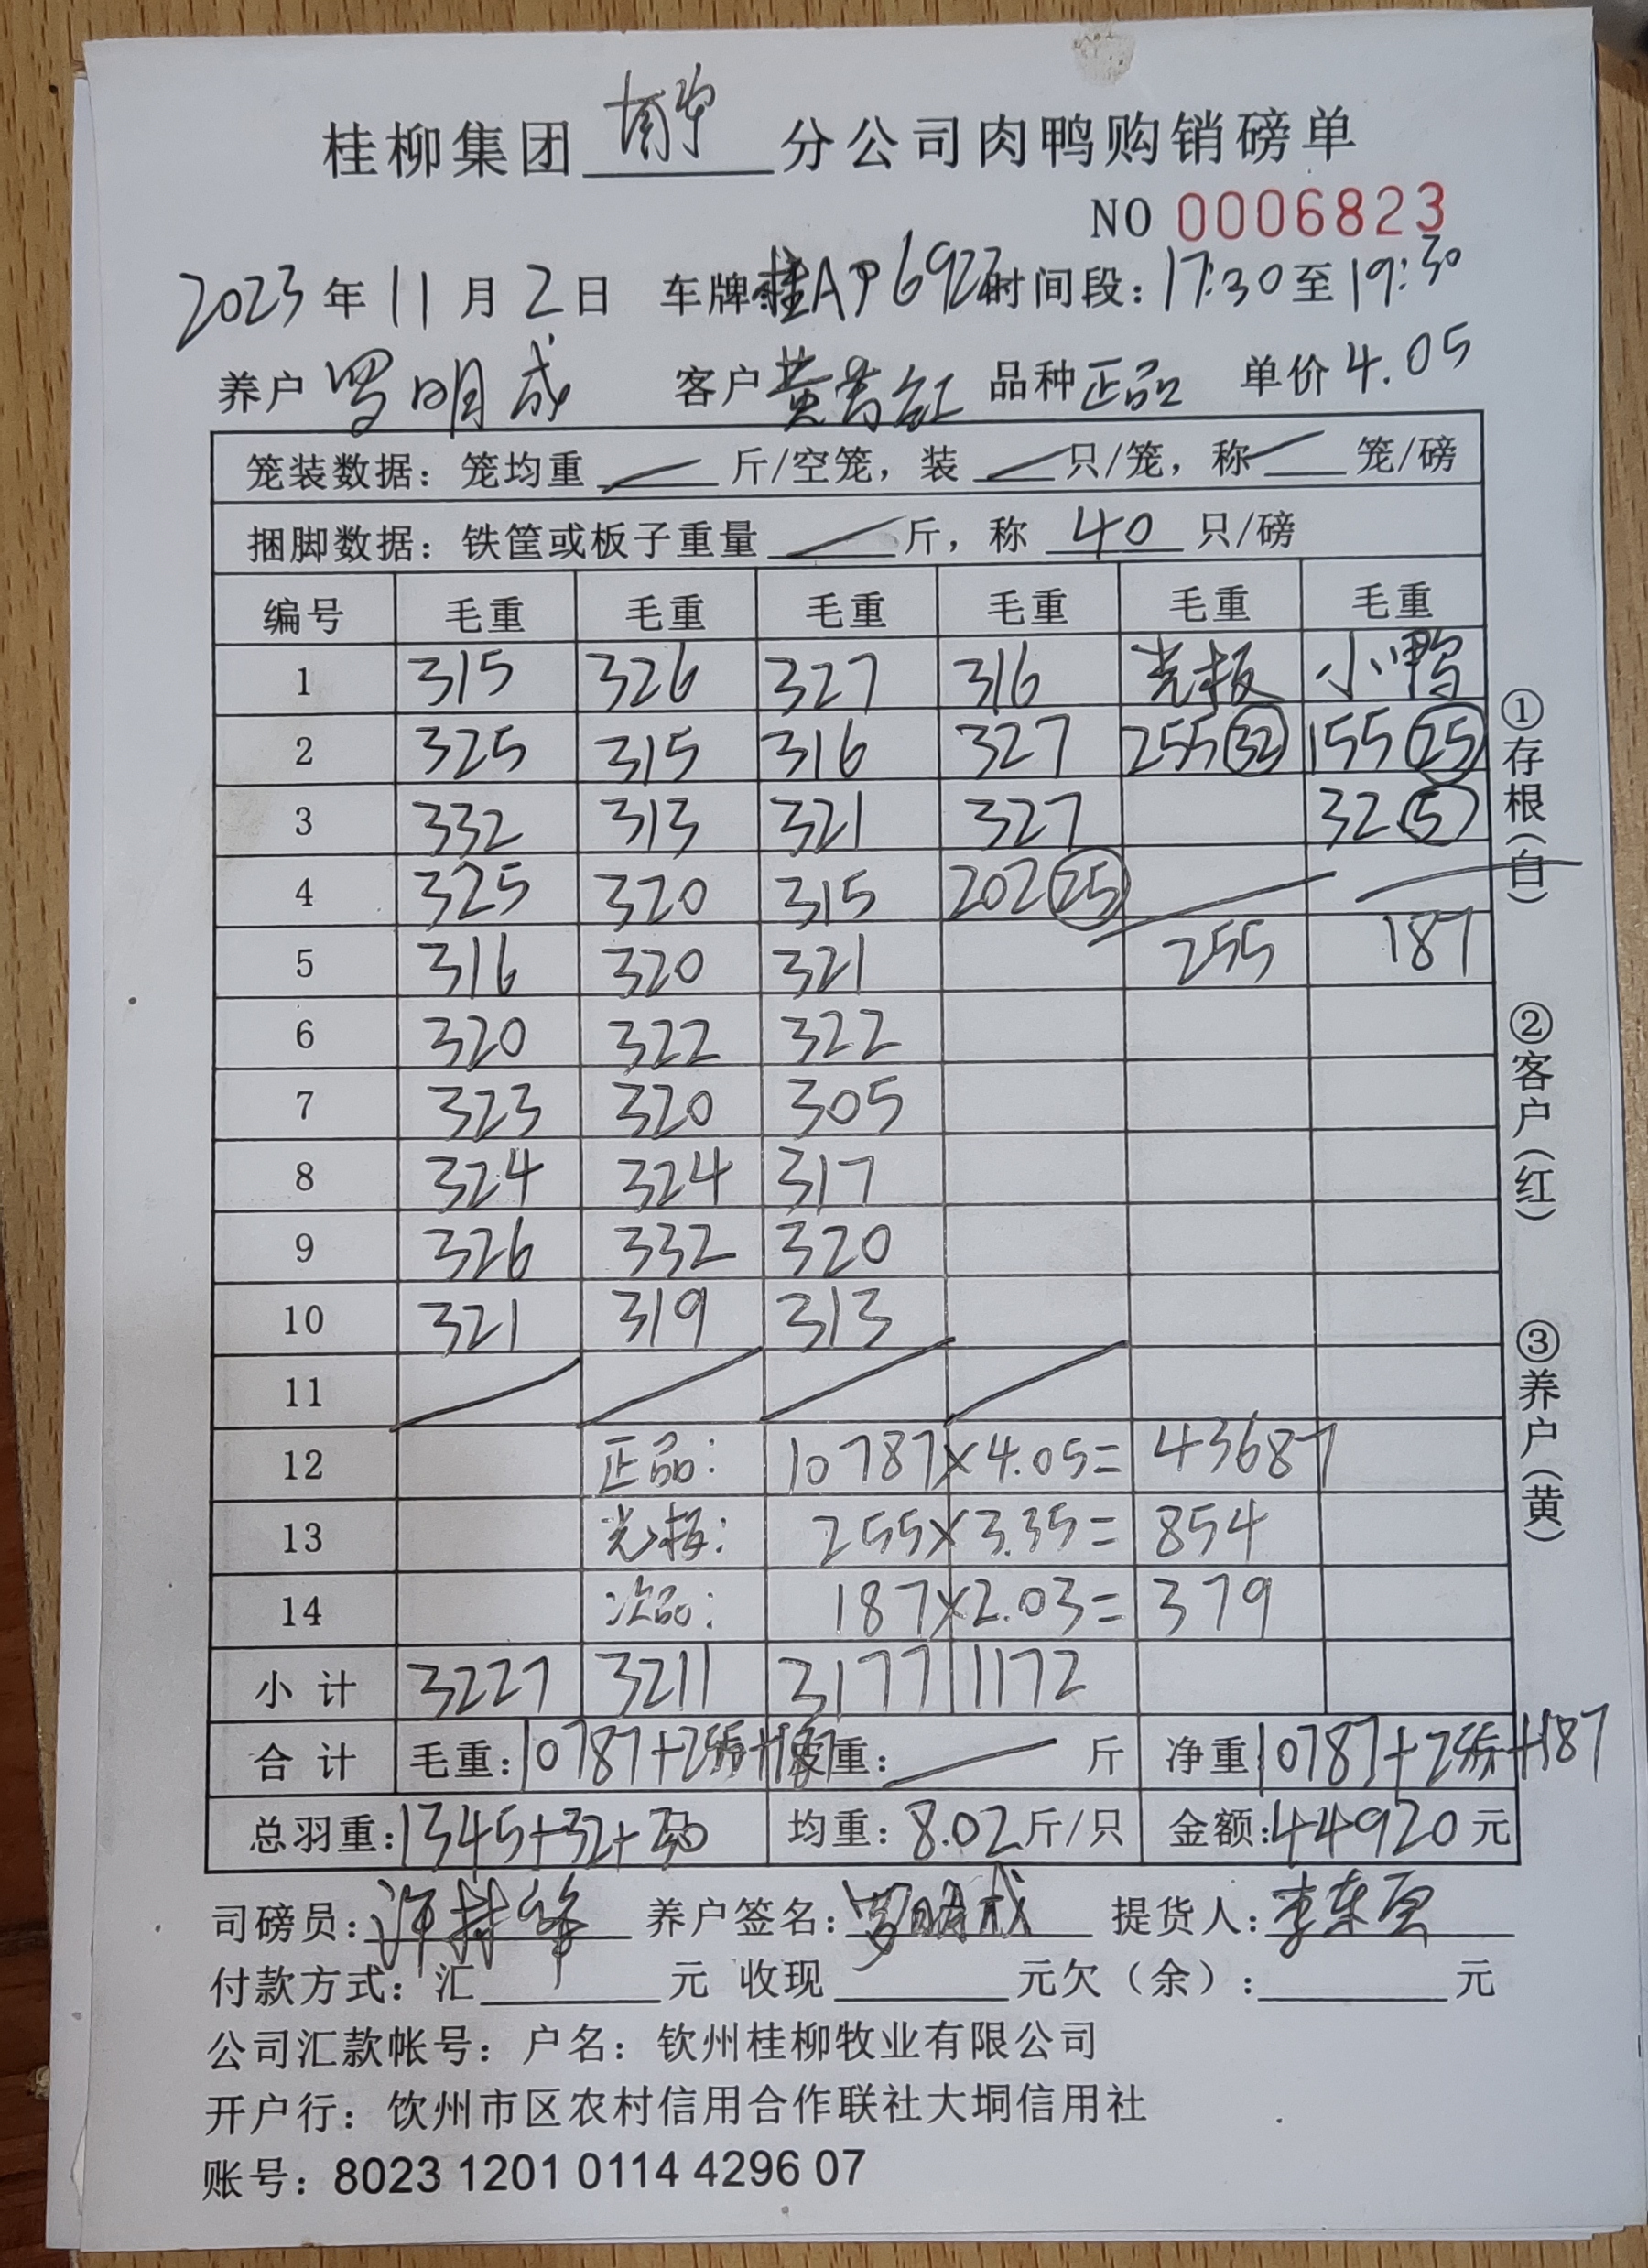 桂柳集团 分公司肉鸭购销磅单
NO 0006823
2023 年 11 月 2 日 车牌:桂AP6923 时间段: 17:30 至 19:30
养户 罗明成 客户 黄 红 品种 正品 单价 4.05
笼装数据: 笼均重 斤/空笼, 装 只/笼, 称 笼/磅
捆脚数据: 铁筐或板子重量 斤, 称 40 只/磅
编号 毛重 毛重 毛重 毛重 毛重 毛重
1 315 326 327 316 光板 小鸭
2 325 315 316 327 255 32 155 25
3 332 313 321 327 32 5
4 325 320 315 202 25
5 316 320 321 255 187
6 320 322 322
7 323 320 305
8 324 324 317
9 326 332 320
10 321 319 313
11
12 正品: 10787×4.05= 43687
13 光板: 255×3.35= 854
14 次品: 187×2.03= 379
小 计 3227 3211 3177 1172
合 计 毛重: 10787+255+187 皮重: 斤 净重 10787+255+187
总羽重: 1345+32+30 均重: 8.02 斤/只 金额: 44920 元
司磅员: 养户签名: 罗明成 提货人: 李东
付款方式: 汇 元 收现 元欠(余): 元
公司汇款帐号: 户名: 钦州桂柳牧业有限公司
开户行: 钦州市区农村信用合作联社大垌信用社
账号: 8023 1201 0114 4296 07
①存根(白)
②客户(红)
③养户(黄)